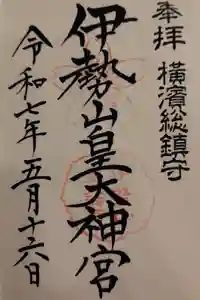 奉拝 横濱総鎮守
伊勢山皇大神宮
令和七年五月十六日